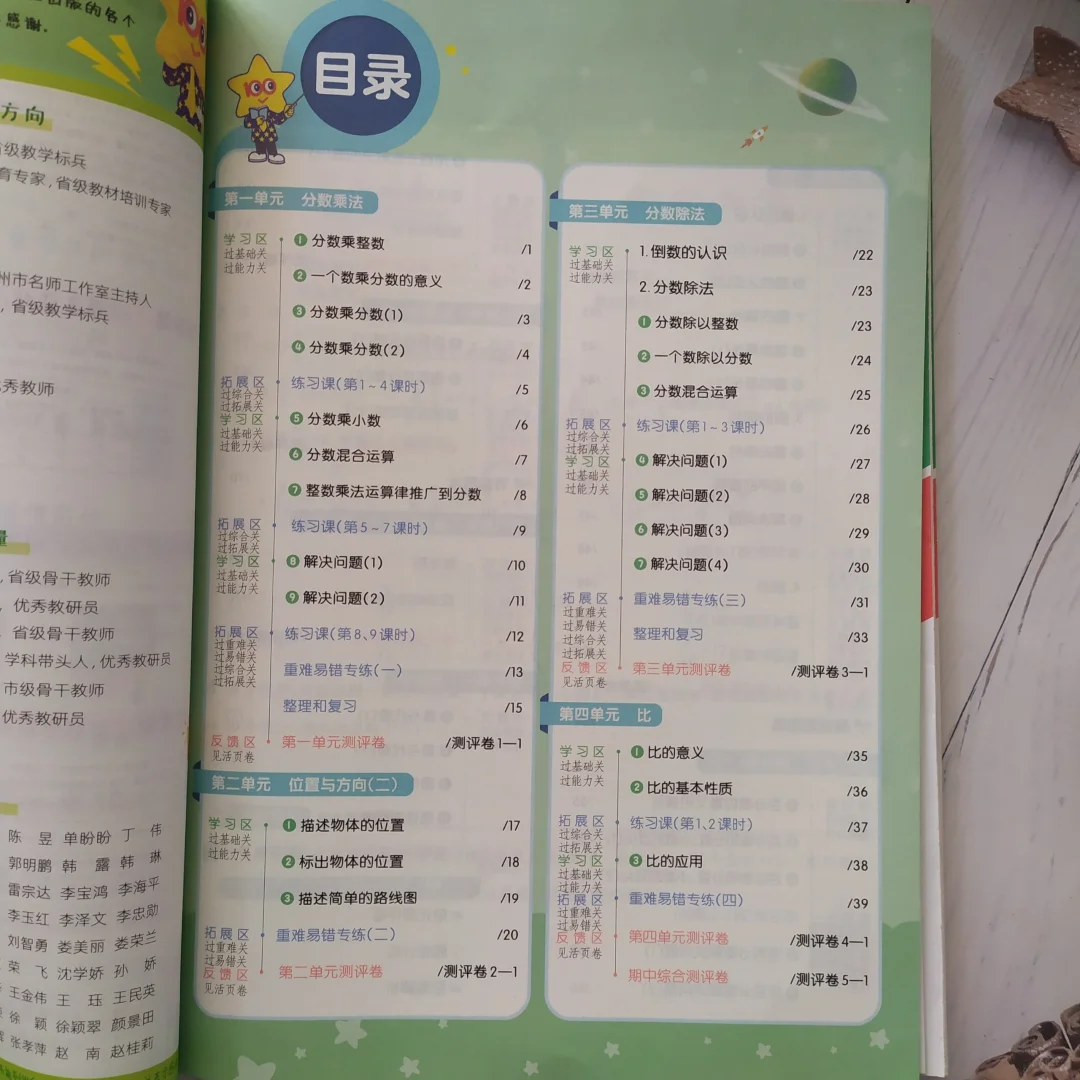 感谢。
方向
省级教学标兵
育专家,省级教材培训专家
州市名师工作室主持人
,省级教学标兵
优秀教师
量
,省级骨干教师
,优秀教研员
、省级骨干教师
学科带头人,优秀教研员
市级骨干教师
优秀教研员
陈 昱 单盼盼 丁 伟
郭明鹏 韩 露 韩 琳
雷宗达 李宝鸿 李海平
李玉红 李泽文 李忠勋
刘智勇 娄美丽 娄荣兰
荣 飞 沈学娇 孙 娇
王金伟 王 珏 王民英
徐 颖 徐颖翠 颜景田
张孝萍 赵 南 赵桂莉
目录
第一单元 分数乘法
学习区
过基础关
过能力关
1 分数乘整数 /1
2 一个数乘分数的意义 /2
3 分数乘分数(1) /3
4 分数乘分数(2) /4
拓展区
过综合关
过拓展关
练习课(第1~4课时) /5
学习区
过基础关
过能力关
5 分数乘小数 /6
6 分数混合运算 /7
7 整数乘法运算律推广到分数 /8
拓展区
过综合关
过拓展关
练习课(第5~7课时) /9
学习区
过基础关
过能力关
8 解决问题(1) /10
9 解决问题(2) /11
拓展区
过重难关
过易错关
过综合关
过拓展关
练习课(第8、9课时) /12
重难易错专练(一) /13
整理和复习 /15
反馈区
见活页卷
第一单元测评卷 /测评卷1—1
第二单元 位置与方向(二)
学习区
过基础关
过能力关
1 描述物体的位置 /17
2 标出物体的位置 /18
3 描述简单的路线图 /19
拓展区
过重难关
过易错关
重难易错专练(二) /20
反馈区
见活页卷
第二单元测评卷 /测评卷2—1
第三单元 分数除法
学习区
过基础关
过能力关
1.倒数的认识 /22
2.分数除法 /23
1 分数除以整数 /23
2 一个数除以分数 /24
3 分数混合运算 /25
拓展区
过综合关
过拓展关
练习课(第1~3课时) /26
学习区
过基础关
过能力关
4 解决问题(1) /27
5 解决问题(2) /28
6 解决问题(3) /29
7 解决问题(4) /30
拓展区
过重难关
过易错关
过综合关
过拓展关
重难易错专练(三) /31
整理和复习 /33
反馈区
见活页卷
第三单元测评卷 /测评卷3—1
第四单元 比
学习区
过基础关
过能力关
1 比的意义 /35
2 比的基本性质 /36
拓展区
过综合关
过拓展关
练习课(第1、2课时) /37
学习区
过基础关
过能力关
3 比的应用 /38
拓展区
过重难关
过易错关
重难易错专练(四) /39
反馈区
见活页卷
第四单元测评卷 /测评卷4—1
期中综合测评卷 /测评卷5—1